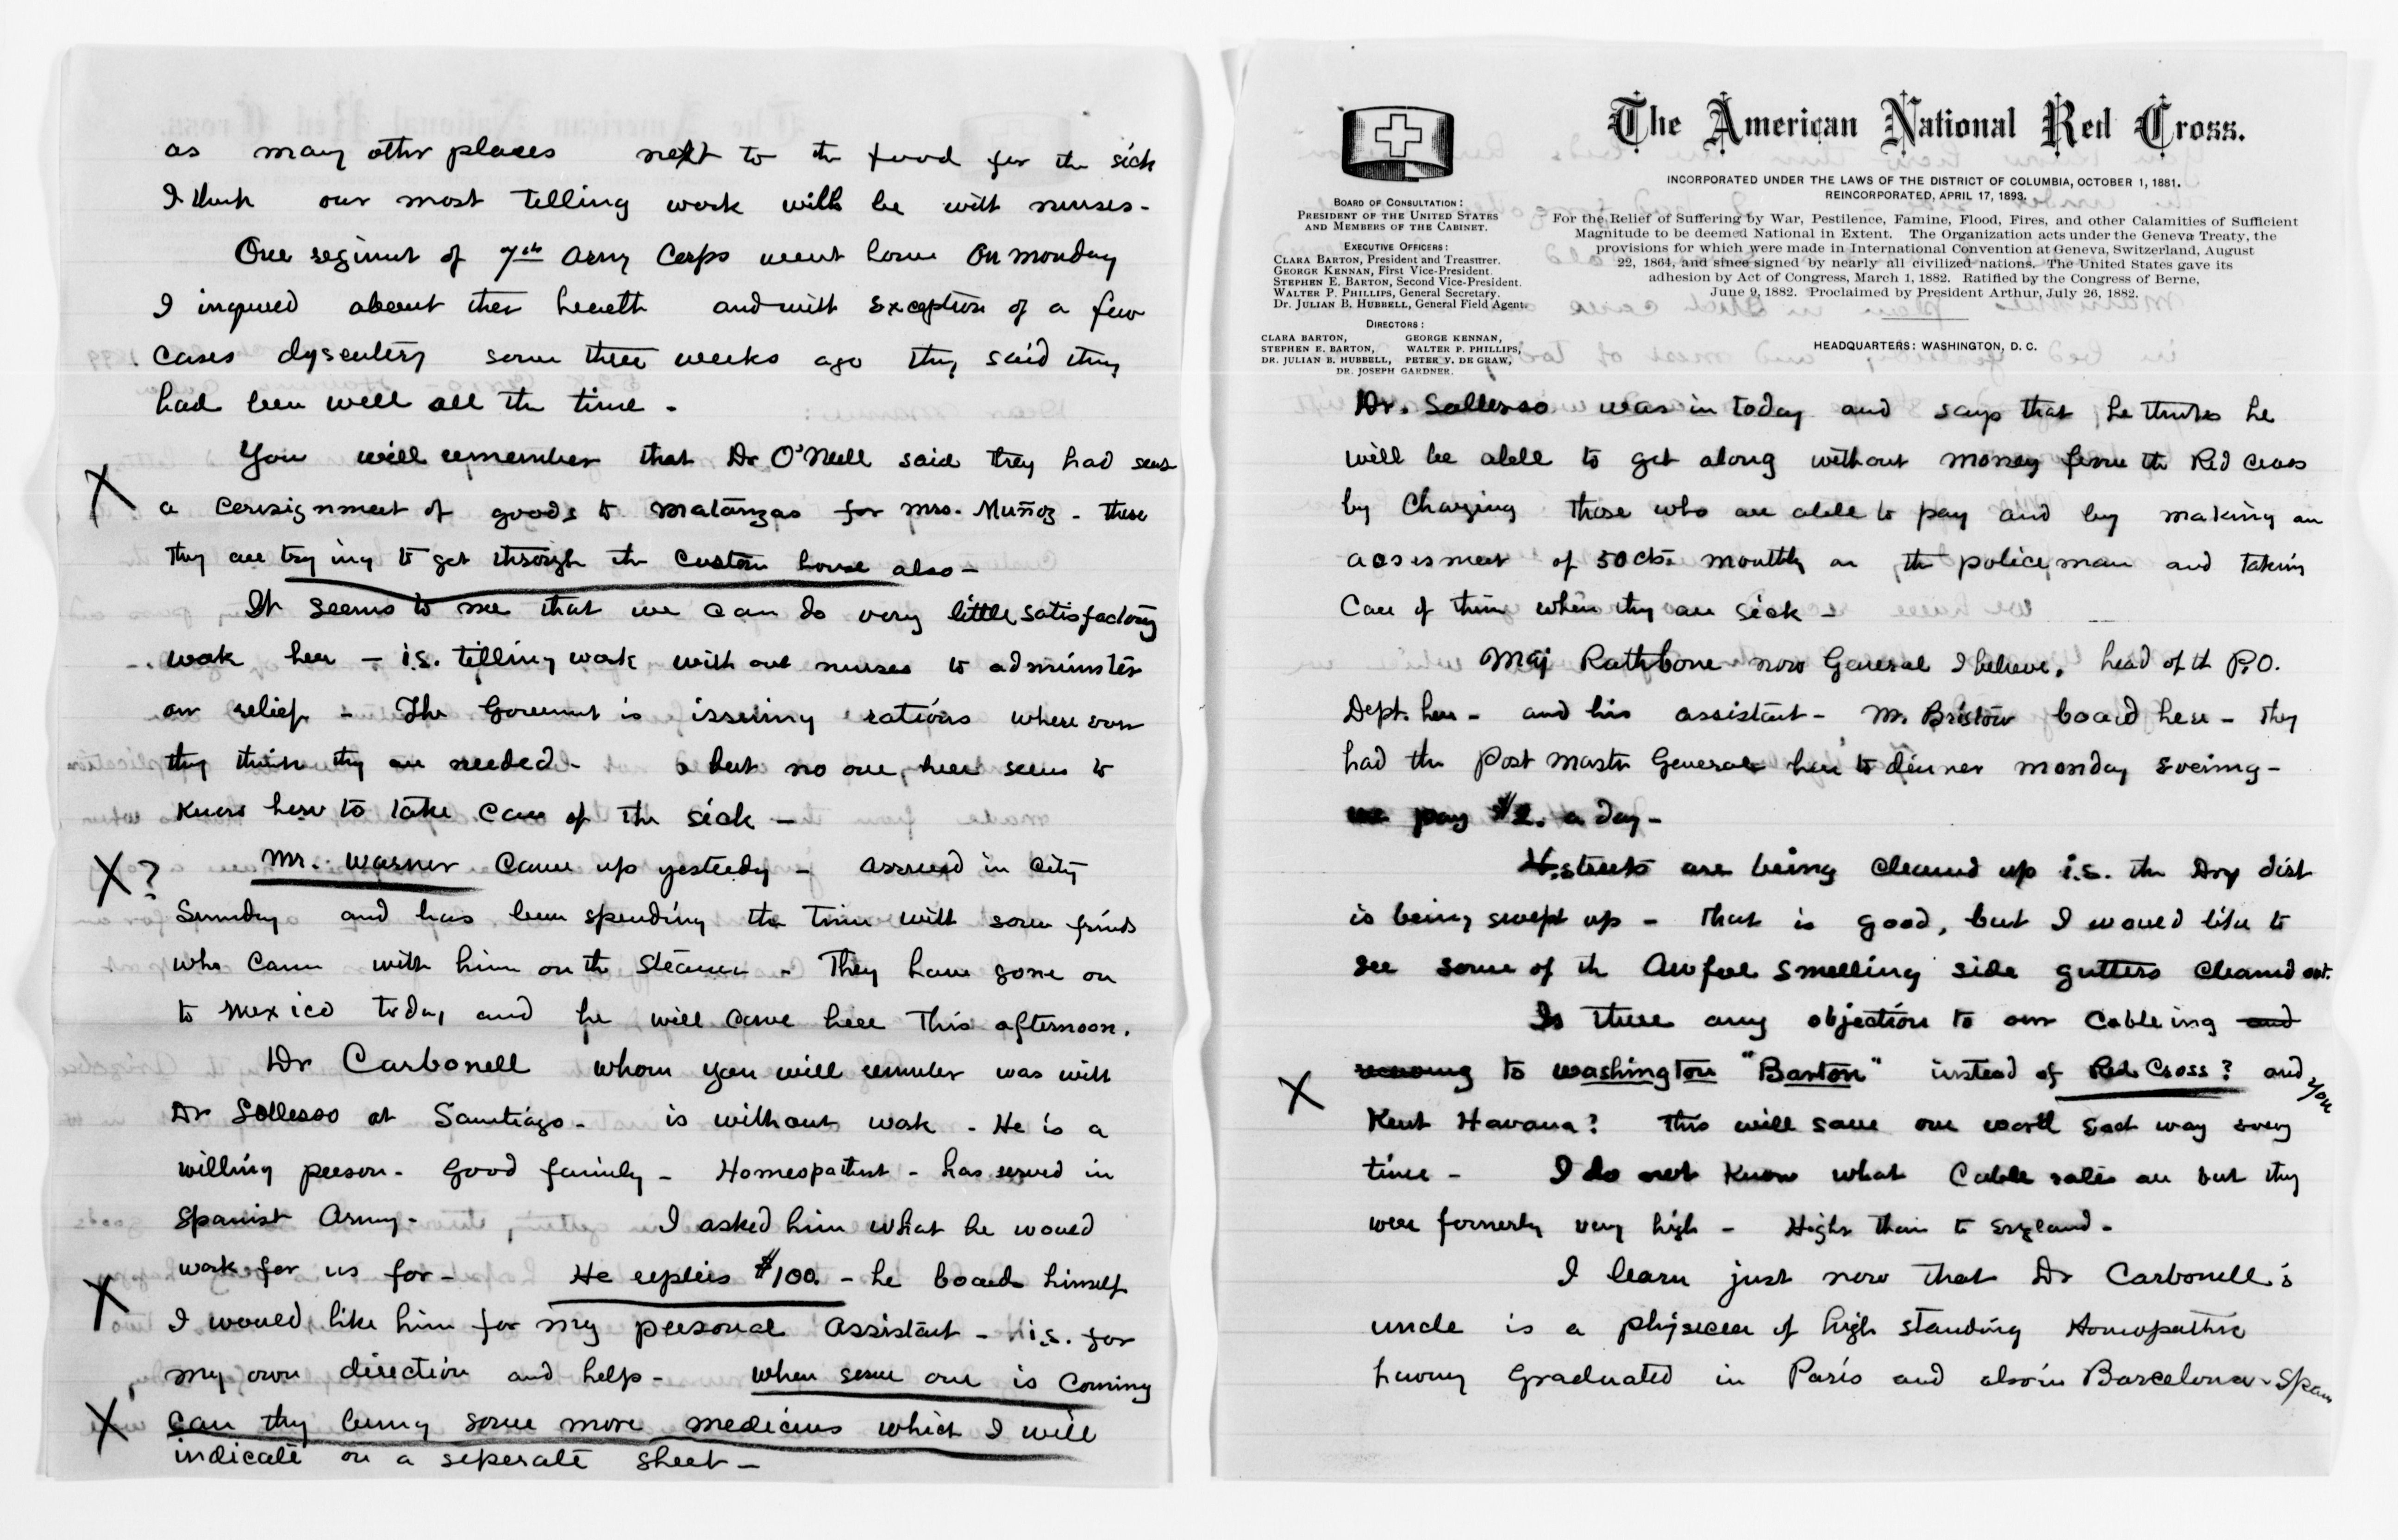 as many other places next to the food for the sick
I think our most telling work will be with nurses -
One regiment of 7th Army Corps went home On monday
I inquired about their health and with exception of a few
cases dysentery some three weeks ago they said they
had been well all the time -
You will remember that Dr O'Neill said they had sent
X
a consignment of goods to Matanzas for Mrs. Muñoz - these
They are trying to get through the Custom house also -
It seems to me that we can do very little satisfactory
work here - i.e. telling work without nurses to administer
our relief - The Government is issuing rations where ever
they think they are needed - but no one here seems to
Know how to take care of the sick -
X? Mr. Warner came up yesterday - arrived in City
Sunday and has been spending the time with some friends
who came with him on the steamer - They have gone on
to Mexico today and he will come here This afternoon.
Dr Carbonell whom you will remember was with
Dr Sollesso at Santiago - is without work - He is a
willing person - Good family - Homeopathist - has served in
Spanish Army - I asked him what he would
work for us for - He replies $100. - he boards himself
X
I would like him for my personal Assistant - i.e. for
my own direction and help - When some one is coming
X can they bring some more medicines which I will
indicate on a seperate sheet -
The American National Red Cross.
INCORPORATED UNDER THE LAWS OF THE DISTRICT OF COLUMBIA, OCTOBER 1, 1881.
REINCORPORATED, APRIL 17, 1893.
For the Relief of Suffering by War, Pestilence, Famine, Flood, Fires, and other Calamities of Sufficient
Magnitude to be deemed National in Extent. The Organization acts under the Geneva Treaty, the
provisions for which were made in International Convention at Geneva, Switzerland, August
22, 1864, and since signed by nearly all civilized nations. The United States gave its
adhesion by Act of Congress, March 1, 1882. Ratified by the Congress of Berne,
June 9, 1882. Proclaimed by President Arthur, July 26, 1882.
HEADQUARTERS: WASHINGTON, D. C.
BOARD OF CONSULTATION:
PRESIDENT OF THE UNITED STATES
AND MEMBERS OF THE CABINET.
EXECUTIVE OFFICERS:
CLARA BARTON, President and Treasurer.
GEORGE KENNAN, First Vice-President.
STEPHEN E. BARTON, Second Vice-President.
WALTER P. PHILLIPS, General Secretary.
Dr. JULIAN B. HUBBELL, General Field Agent.
DIRECTORS:
CLARA BARTON, GEORGE KENNAN,
STEPHEN E. BARTON, WALTER P. PHILLIPS,
DR. JULIAN B. HUBBELL, PETER V. DE GRAW,
DR. JOSEPH GARDNER.
Dr. Sollesso was in today and says that he thinks he
will be able to get along without money from the Red Cross
by Charging those who are able to pay and by making an
assesment of 50 cts. monthly on the policeman and taking
Care of them when they are sick -
Maj Rathbone now General I believe, head of th P.O.
Dept. here - and his assistant - Mr. Bristow board here - They
had the Post Master General here to dinner monday evening -
we pay $2. a day -
streets are being cleaned up i.e. the Dry dirt
is being swept up - That is good, but I would like to
see some of th Awful smelling side gutters cleaned out.
Is there any objection to our Cableing and
receiving to Washington "Barton" instead of Red Cross? and you
X
Kent Havana? This will save one word each way every
time - I do not Know what Cable rates are but they
were formerly very high - Higher than to England -
I learn just now that Dr Carbonell's
uncle is a physician of high standing Homeopathic
having Graduated in Paris and also in Barcelona - Spain